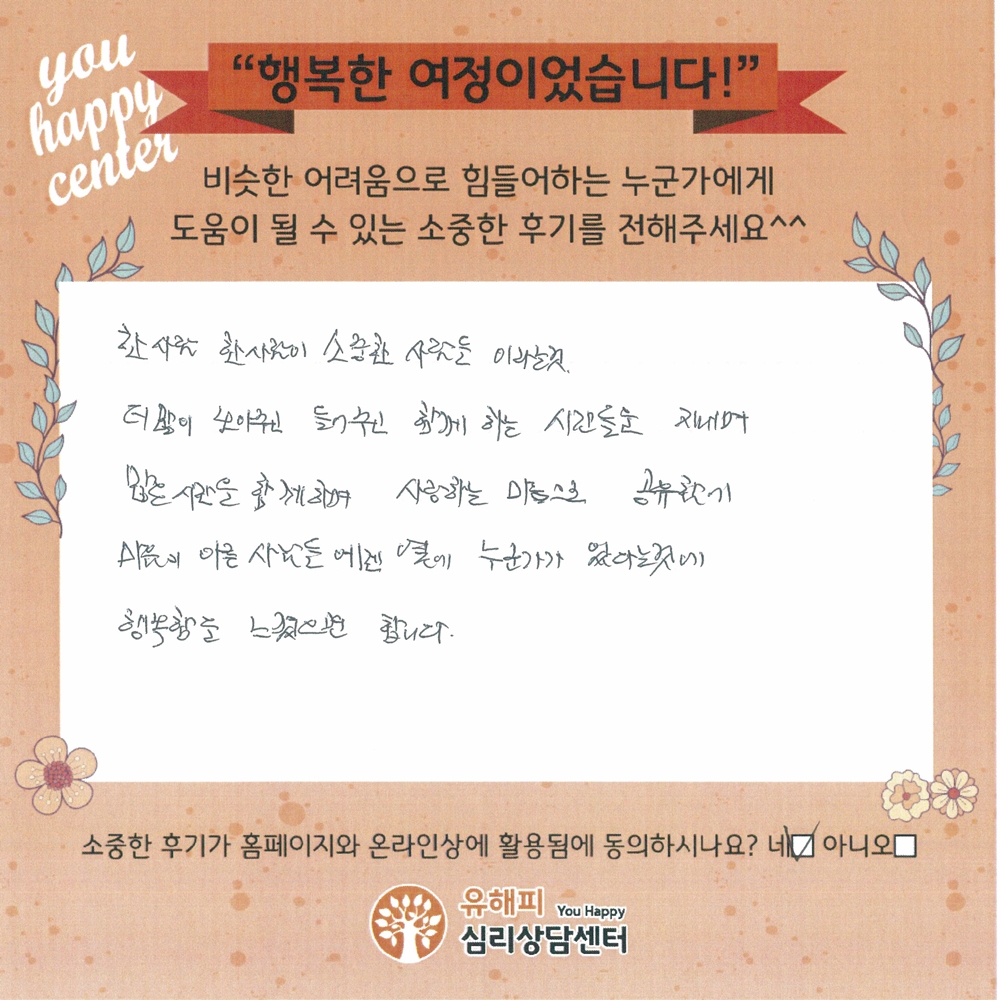 you
happy
center
“행복한 여정이었습니다!”
비슷한 어려움으로 힘들어하는 누군가에게
도움이 될 수 있는 소중한 후기를 전해주세요^^
한사람 한사람이 소중한 사람들 이라는것.
더 많이 보아주고 들어주고 함께 하는 시간들을 지내며
많은 시간을 함께하며 사랑하는 마음으로 공유했기에
마음이 아픈 사람들 에겐 옆에 누군가가 있다는것에
행복함을 느꼈으면 합니다.
소중한 후기가 홈페이지와 온라인상에 활용됨에 동의하시나요? 네 아니오
유해피 You Happy
심리상담센터